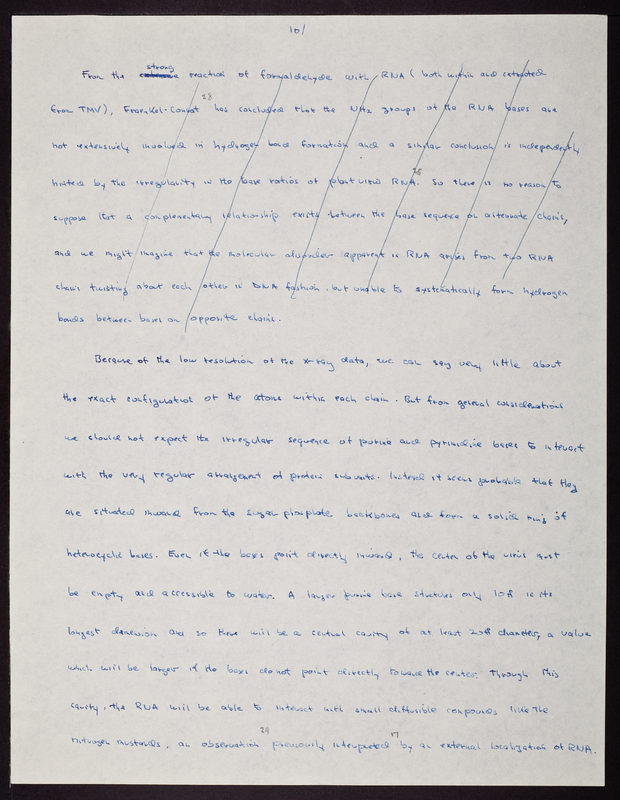 10/
From the strong reaction of formaldehyde with RNA (both within and extracted
from TMV), Fraenkel-Conrat 28 has concluded that the NH2 groups of the RNA bases are
not extensively involved in hydrogen bond formation and a similar conclusion is independently
hinted by the irregularity in the base ratios of plant virus RNA. 25 So there is no reason to
suppose that a complementary relationship exists between the base sequence on alternate chains,
and we might imagine that the molecular disorder apparent in RNA arises from two RNA
chains twisting about each other in DNA fashion, but unable to systematically form hydrogen
bonds between bases on opposite chains.
Because of the low resolution of the x-ray data, we can say very little about
the exact configuration of the atoms within each chain. But from general considerations
we should not expect the irregular sequence of purine and pyrimidine bases to interact
with the very regular arrangement of protein subunits. Instead it seems probable that they
are situated inward from the sugar phosphate backbones and form a solid ring of
heterocyclic bases. Even if the bases point directly inward, the center of the virus must
be empty and accessible to water. A larger purine base stretches only 10Å in its
longest dimension and so there will be a central cavity of at least 20Å diameter, a value
which will be larger if the bases do not point directly toward the center. Through this
cavity, the RNA will be able to interact with small diffusible compounds like the
nitrogen mustards, 29 an observation previously interpreted 17 by an external localization of RNA.